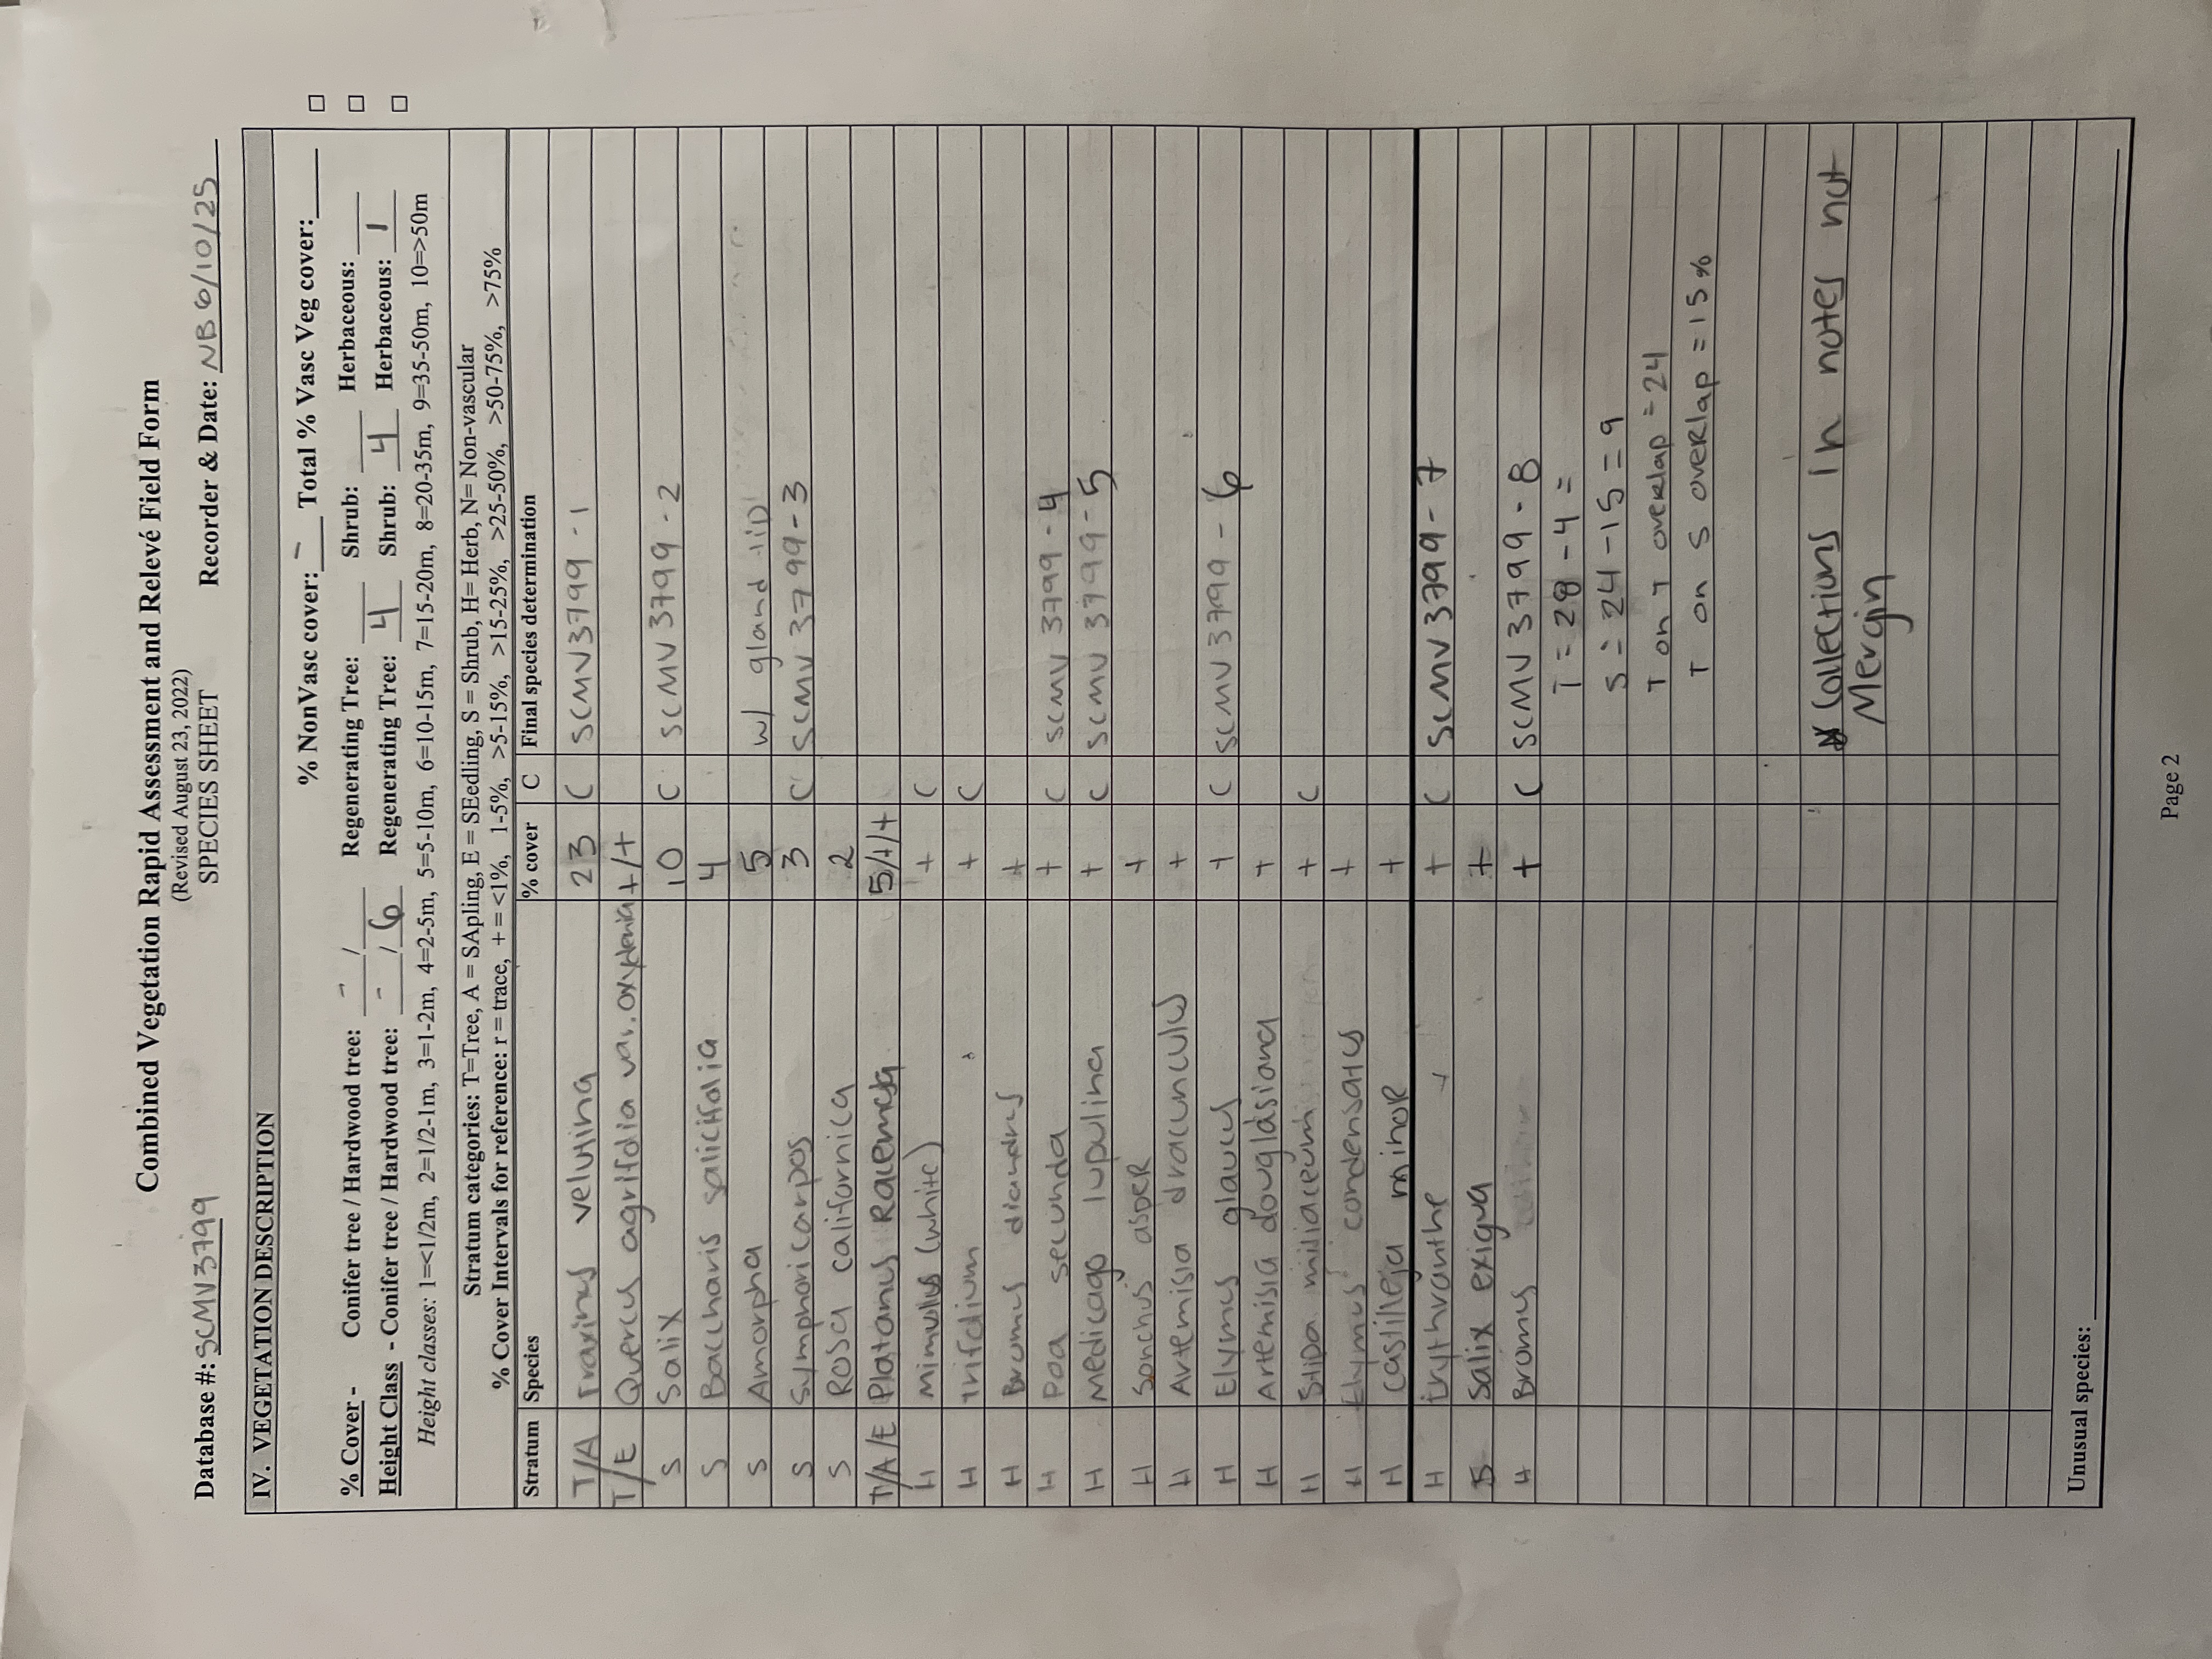 Combined Vegetation Rapid Assessment and Relevé Field Form
(Revised August 23, 2022)
Database #: SCMV3799 SPECIES SHEET Recorder & Date: NB 6/10/25
IV. VEGETATION DESCRIPTION
% NonVasc cover: - Total % Vasc Veg cover:
% Cover - Conifer tree / Hardwood tree: - / Regenerating Tree: Shrub: Herbaceous:
Height Class - Conifer tree / Hardwood tree: - / 6 Regenerating Tree: 4 Shrub: 4 Herbaceous: 1
Height classes: 1=<1/2m, 2=1/2-1m, 3=1-2m, 4=2-5m, 5=5-10m, 6=10-15m, 7=15-20m, 8=20-35m, 9=35-50m, 10=>50m
Stratum categories: T=Tree, A = SApling, E = SEedling, S = Shrub, H= Herb, N= Non-vascular
% Cover Intervals for reference: r = trace, + = <1%, 1-5%, >5-15%, >15-25%, >25-50%, >50-75%, >75%
Stratum Species % cover C Final species determination
T/A Fraxinus velutina 23 C SCMV3799 - 1
T/E Quercus agrifolia var. oxyadenia +/+
S Salix 10 C SCMV 3799 - 2
S Baccharis salicifolia 4
S Amorpha 5 w/ gland tip
S Symphoricarpos 3 C SCMV 3799 - 3
S Rosa californica 2
T/A/E Platanus Racemosa 5/+/+
H Mimulus (white) + C
H trifolium + C
H Bromus diandrus +
H Poa secunda + C SCMV 3799 - 4
H Medicago lupulina + C SCMV 3799 - 5
H Sonchus aspeR +
H Artemisia dracunculus +
H Elymus glaucus + C SCMV 3799 - 6
H Artemisia douglasiana +
H Stipa miliaceum + C
H Elymus condensatus +
H castilleja minoR +
H Erythranthe + C SCMV 3799 - 7
S Salix exigua +
H Bromus + C SCMV 3799 - 8
T = 28 - 4 =
S = 24 - 15 = 9
T on T oveRlap = 24
T on S oveRlap = 15 %
* Collections in notes not
Mergin
Unusual species:
Page 2